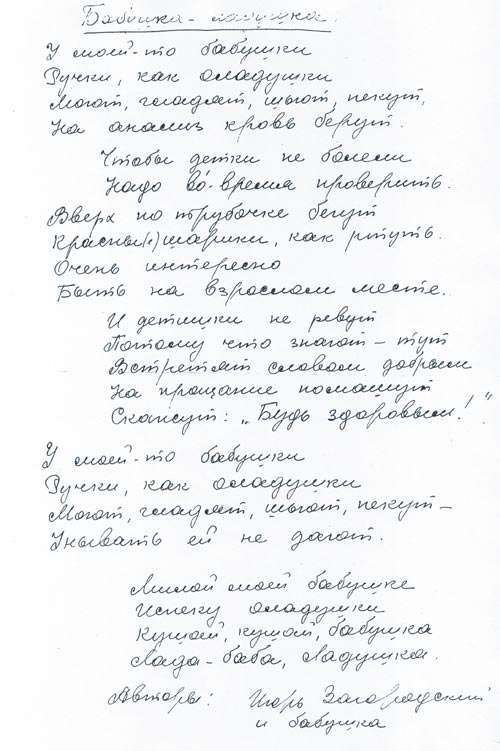 Бабушка-ладушка.
У моей-то бабушки
Ручки, как оладушки
Моют, гладят, шьют, пекут,
На анализ кровь берут.
Чтобы детки не болели
Надо во-время проверить.
Вверх по трубочке бегут
Красны(е) шарики, как ртуть.
Очень интересно
Быть на взрослом месте.
И детишки не ревут
Потому что знают – тут
Встретят словом добрым
На прощание помашут
Скажут: „Будь здоровым!"
У моей-то бабушки
Ручки, как оладушки
Моют, гладят, шьют, пекут –
Унывать ей не дают.
Милой моей бабушке
Испеку оладушки
Кушай, кушай, бабушка
Лада-баба, Ладушка.
Авторы: Игорь Загородский
и бабушка